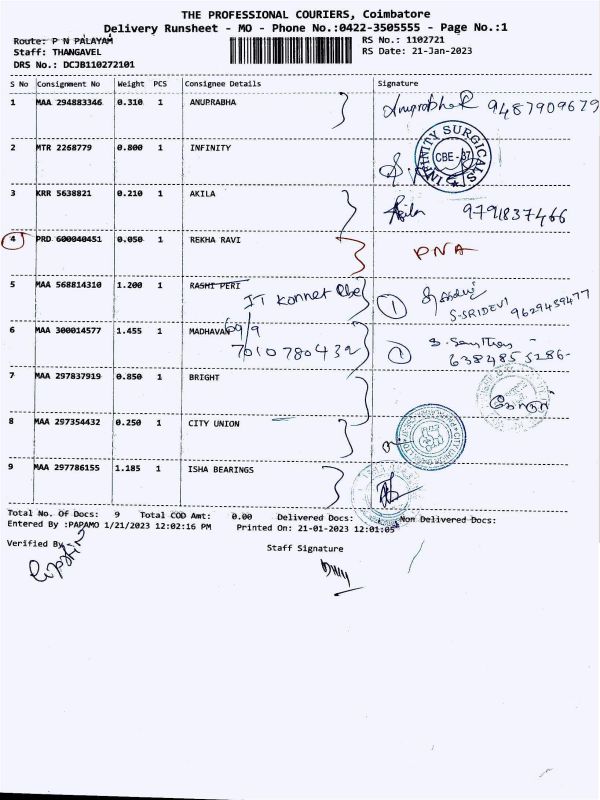 THE PROFESSIONAL COURIERS, Coimbatore
Delivery Runsheet - MO - Phone No.:0422-3505555 - Page No.:1
Route: P N PALAYAM RS No.: 1102721
Staff: THANGAVEL RS Date: 21-Jan-2023
DRS No.: DCJB110272101
S No Consignment No Weight PCS Consignee Details Signature
1 MAA 294883346 0.310 1 ANUPRABHA Anuprabha R 9487909679
2 MTR 2268779 0.800 1 INFINITY INFINITY SURGICALS CBE - 37
3 KRR 5638821 0.210 1 AKILA Akila 9791837466
4 PRD 600040451 0.050 1 REKHA RAVI PNA
5 MAA 568814310 1.200 1 RASHI PERI IT Konnet Cbe 1
S-SRIDEVI 9629439477
6 MAA 300014577 1.455 1 MADHAVAN 69/9
7010780432
6384855286-
7 MAA 297837919 0.850 1 BRIGHT
8 MAA 297354432 0.250 1 CITY UNION
9 MAA 297786155 1.185 1 ISHA BEARINGS
Total No. Of Docs: 9 Total COD Amt: 0.00 Delivered Docs: Non Delivered Docs:
Entered By :PAPAMO 1/21/2023 12:02:16 PM Printed On: 21-01-2023 12:01:05
Verified By
Staff Signature